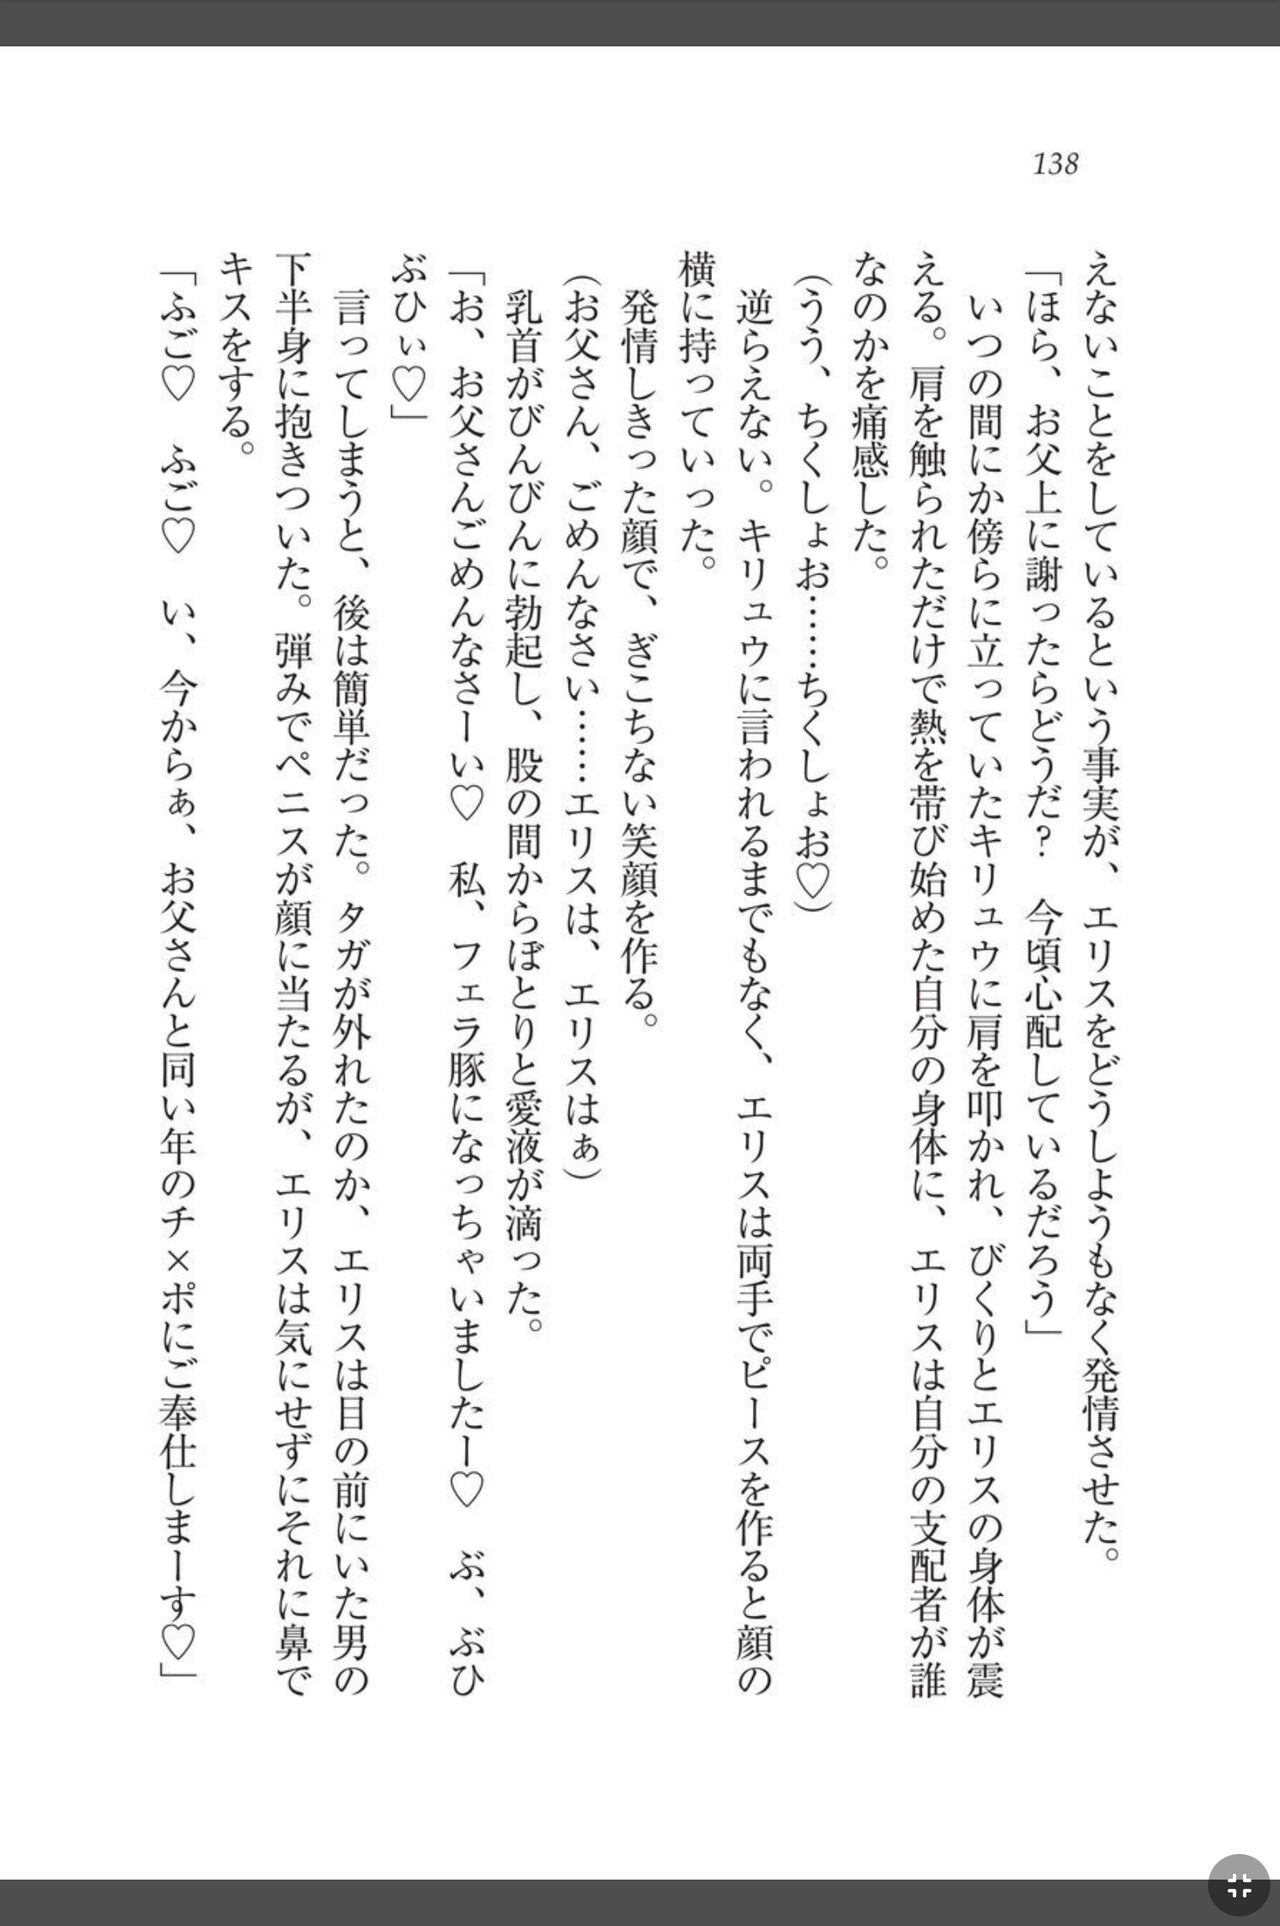 138
えないことをしているという事実が、エリスをどうしようもなく発情させた。
「ほら、お父上に謝ったらどうだ？　今頃心配しているだろう」
いつの間にか傍らに立っていたキリュウに肩を叩かれ、びくりとエリスの身体が震
える。肩を触られただけで熱を帯び始めた自分の身体に、エリスは自分の支配者が誰
なのかを痛感した。
（うう、ちくしょお……ちくしょお♡）
逆らえない。キリュウに言われるまでもなく、エリスは両手でピースを作ると顔の
横に持っていった。
発情しきった顔で、ぎこちない笑顔を作る。
（お父さん、ごめんなさい……エリスは、エリスはぁ）
乳首がびんびんに勃起し、股の間からぼとりと愛液が滴った。
「お、お父さんごめんなさーい♡　私、フェラ豚になっちゃいましたー♡　ぶ、ぶひ
ぶひぃ♡」
言ってしまうと、後は簡単だった。タガが外れたのか、エリスは目の前にいた男の
下半身に抱きついた。弾みでペニスが顔に当たるが、エリスは気にせずにそれに鼻で
キスをする。
「ふご♡　ふご♡　い、今からぁ、お父さんと同い年のチ×ポにご奉仕しまーす♡」